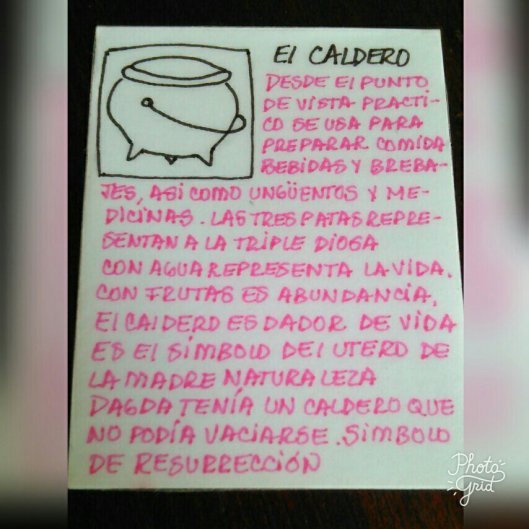 El CALDERO
DESDE El PUNTO
DE VISTA PRACTI-
CO SE USA PARA
PREPARAR COMIDA
BEBIDAS Y BREBA-
JES, ASI COMO UNGÜENTOS Y ME-
DICINAS. LAS TRES PATAS REPRE-
SENTAN A LA TRIPLE DIOSA
CON AGUA REPRESENTA LA VIDA.
CON FRUTAS ES ABUNDANCIA,
El CAlDERO ES DADOR DE VIDA
ES El SÍMBOlO DEl UTERO DE
LA MADRE NATURALEZA
DAGDA TENÍA UN CALDERO QUE
NO PODÍA VACIARSE. SIMBOLO
DE RESURRECCIÓN
Photo
Grid